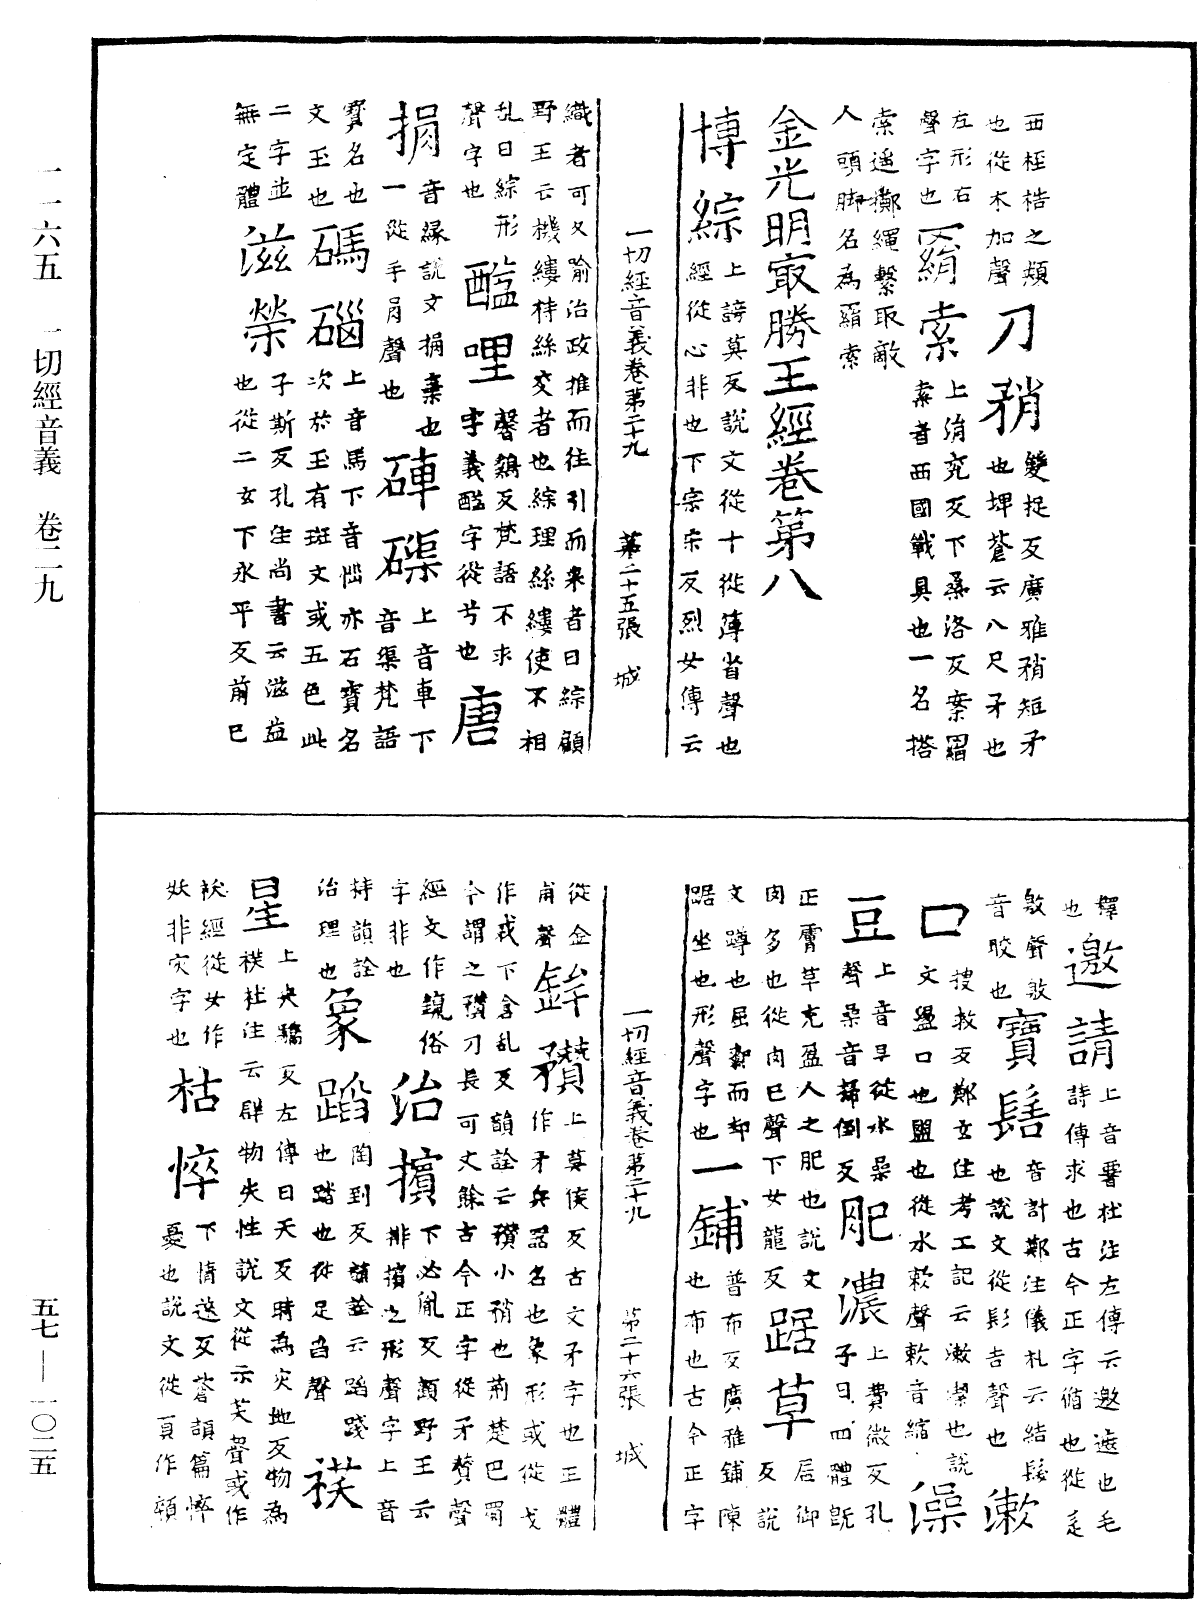 一一六五　一切經音義　卷二九
五七—一〇二五
西桎梏之類
也從木加聲
刀矟
雙捉反廣雅矟短矛
也埤蒼云八尺矛也
左形右
聲字也
羂索
上涓兖反下桑洛反案羂
索者西國戰具也一名搭
索遥擲繩繫取敵
人頭脚名為羂索
金光明㝡勝王經卷第八
博綜
上謗莫反說文從十從溥省聲也
經從心非也下宗宋反烈女傳云
一切經音義卷第二十九　第二十五張　城
織者可以喻治政推而往引而來者曰綜顧
野王云機縷持絲交者也綜理絲縷使不相
乱曰綜形
聲字也
醯哩
馨鷄反梵語不求
字義醯字從兮也
唐
捐
音緣說文捐棄也
一從手肙聲也
硨磲
上音車下
音渠梵語
寶名也
文玉也
碼碯
上音馬下音惱亦石寶名
次於玉有斑文或五色此
二字並
無定體
滋榮
子斯反孔注尚書云滋益
也從二玄下永平反前已
釋
也
邀請
上音曁杜注左傳云邀遮也毛
詩傳求也古今正字循也從辵
敫聲敫
音皎也
寶髻
音計鄭注儀礼云結髮
也說文從髟吉聲也
漱
口
搜救反鄭玄注考工記云漱潔也說
文盪口也盥也從水欶聲欶音縮
澡
豆
上音早從水喿
聲喿音掃倒反
肥濃
上費微反孔
子曰四體旣
正膚草充盈人之肥也說文
肉多也從肉巳聲下女龍反
踞草
居御
反說
文蹲也屈䣛而却
踞坐也形聲字也
一鋪
普布反廣雅鋪陳
也布也古今正字
一切經音義卷第二十九　第二十六張　城
從金
甫聲
鉾䂎
上莫侯反古文矛字也王體
作矛兵器名也象形或從戈
作戎下倉乱反韻詮云䂎小矟也荊楚巴蜀
今謂之䂎刀長可丈餘古今正字從矛贊聲
經文作鑹俗
字非也
治擯
下必胤反顧野王云
排擯之形聲字上音
持韻詮
治理也
象蹈
陶到反韻詮云蹈踐
也踏也從足舀聲
祅
星
上夭驕反左傳曰天反時為灾地反物為
祅杜注云群物失性說文從示芺聲或作
䄏經從女作
妖非灾字也
枯悴
下情遂反蒼頡篇悴
憂也說文從頁作顇